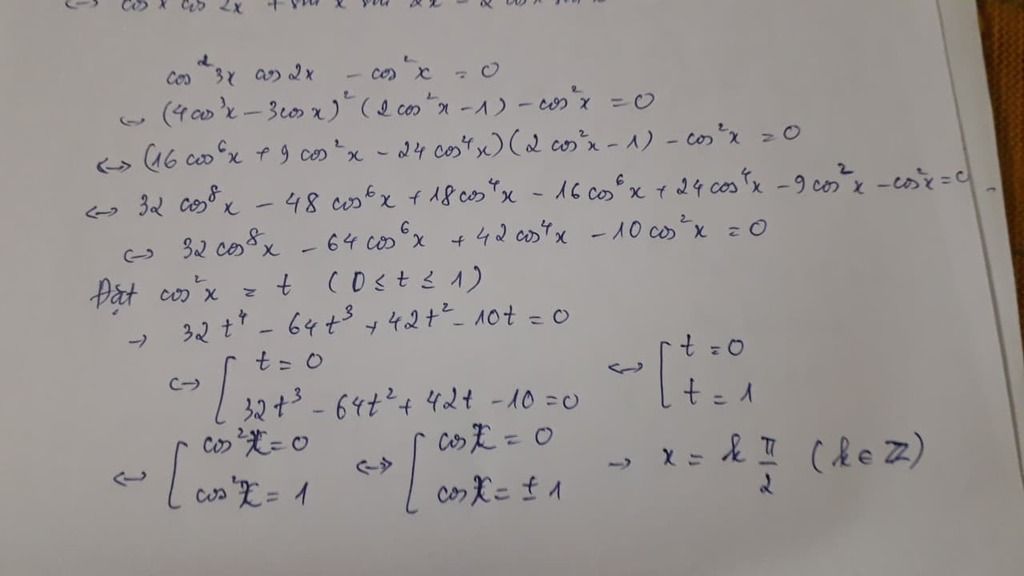 cos²3x cos2x - cos²x = 0
↔ (4cos³x - 3cosx)² (2cos²x - 1) - cos²x = 0
↔ (16cos⁶x + 9cos²x - 24cos⁴x)(2cos²x - 1) - cos²x = 0
↔ 32cos⁸x - 48cos⁶x + 18cos⁴x - 16cos⁶x + 24cos⁴x - 9cos²x - cos²x = 0
↔ 32cos⁸x - 64cos⁶x + 42cos⁴x - 10cos²x = 0
Đặt cos²x = t (0 ≤ t ≤ 1)
→ 32t⁴ - 64t³ + 42t² - 10t = 0
↔ [ t = 0
32t³ - 64t² + 42t - 10 = 0
↔ [ t = 0
t = 1
↔ [ cos²x = 0
cos²x = 1
↔ [ cosx = 0
cosx = ± 1
→ x = k π/2 (k ∈ ℤ)